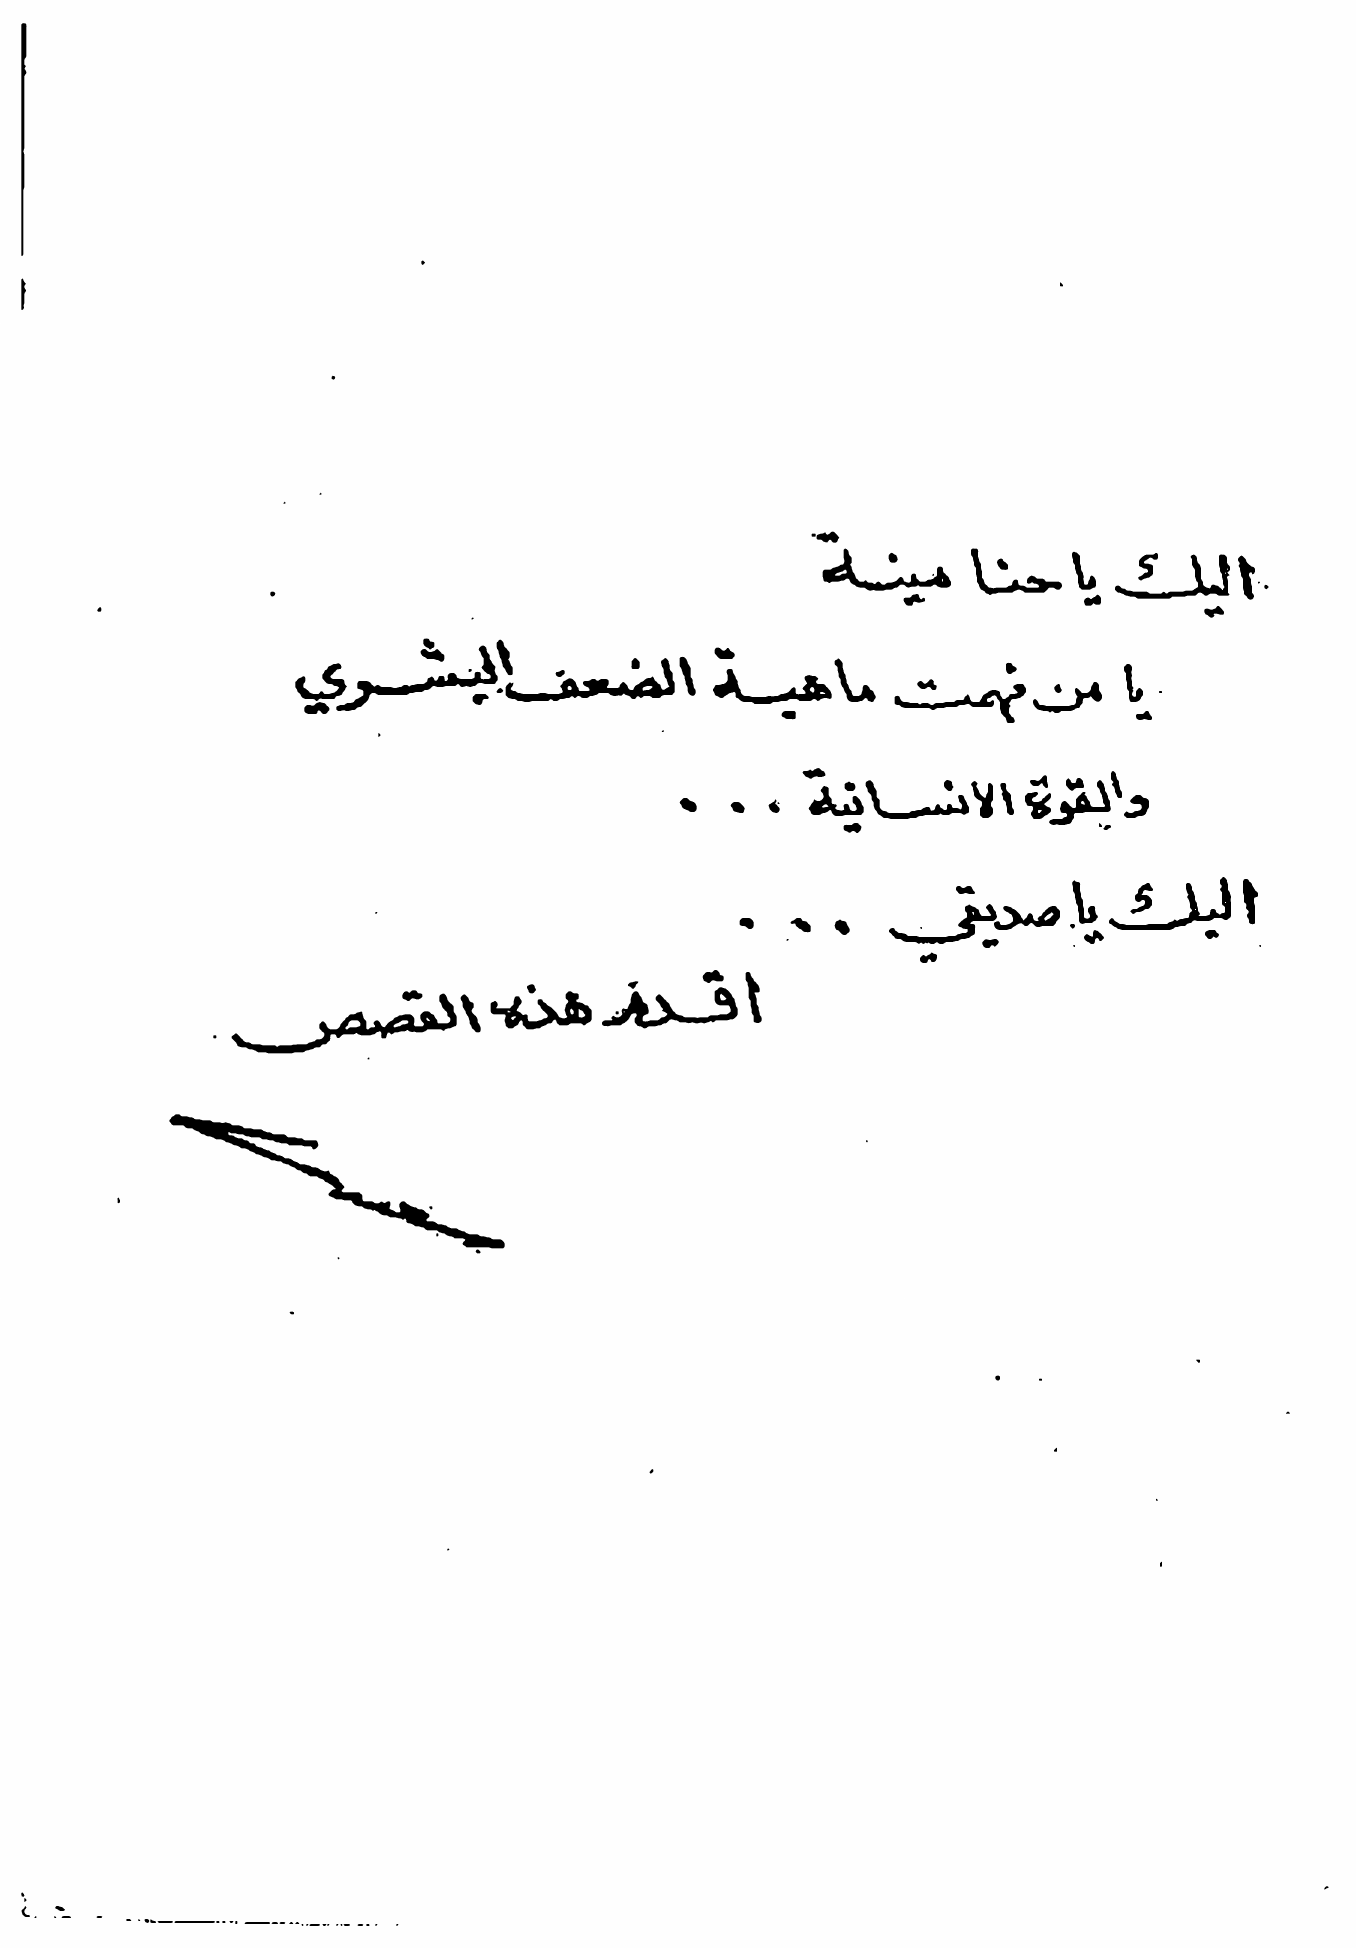 اليك يا حنا مينة
يا من فهمت ماهية الضعف البشري
والقوة الانسانية ...
اليك يا صديقي ...
اقدم هذه القصص